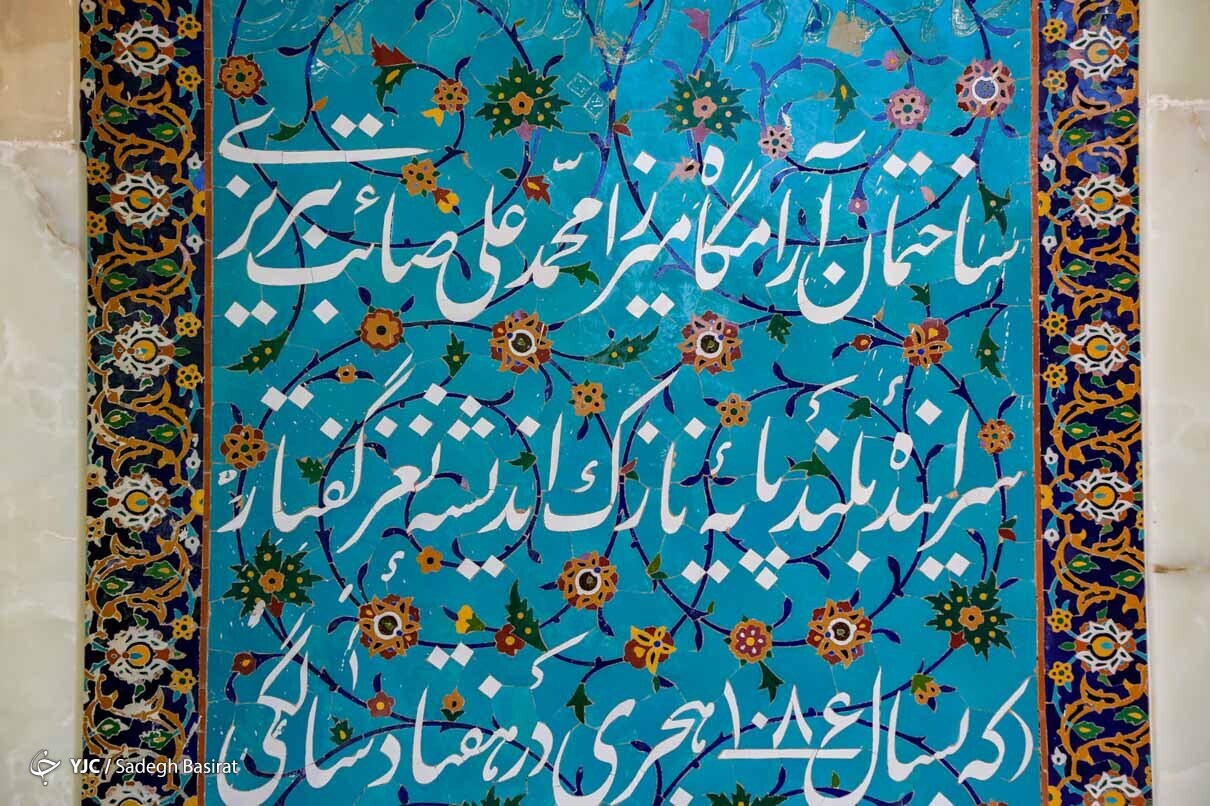 ساختمان آرامگاه میرزا محمّد علی صائب تبریزی
سرایندهٔ بلند پایهٔ نازک اندیشهٔ نغز گفتار
(که بسال ۱۰۸۶ هجری در هفتاد سالگی
YJC / Sadegh Basirat